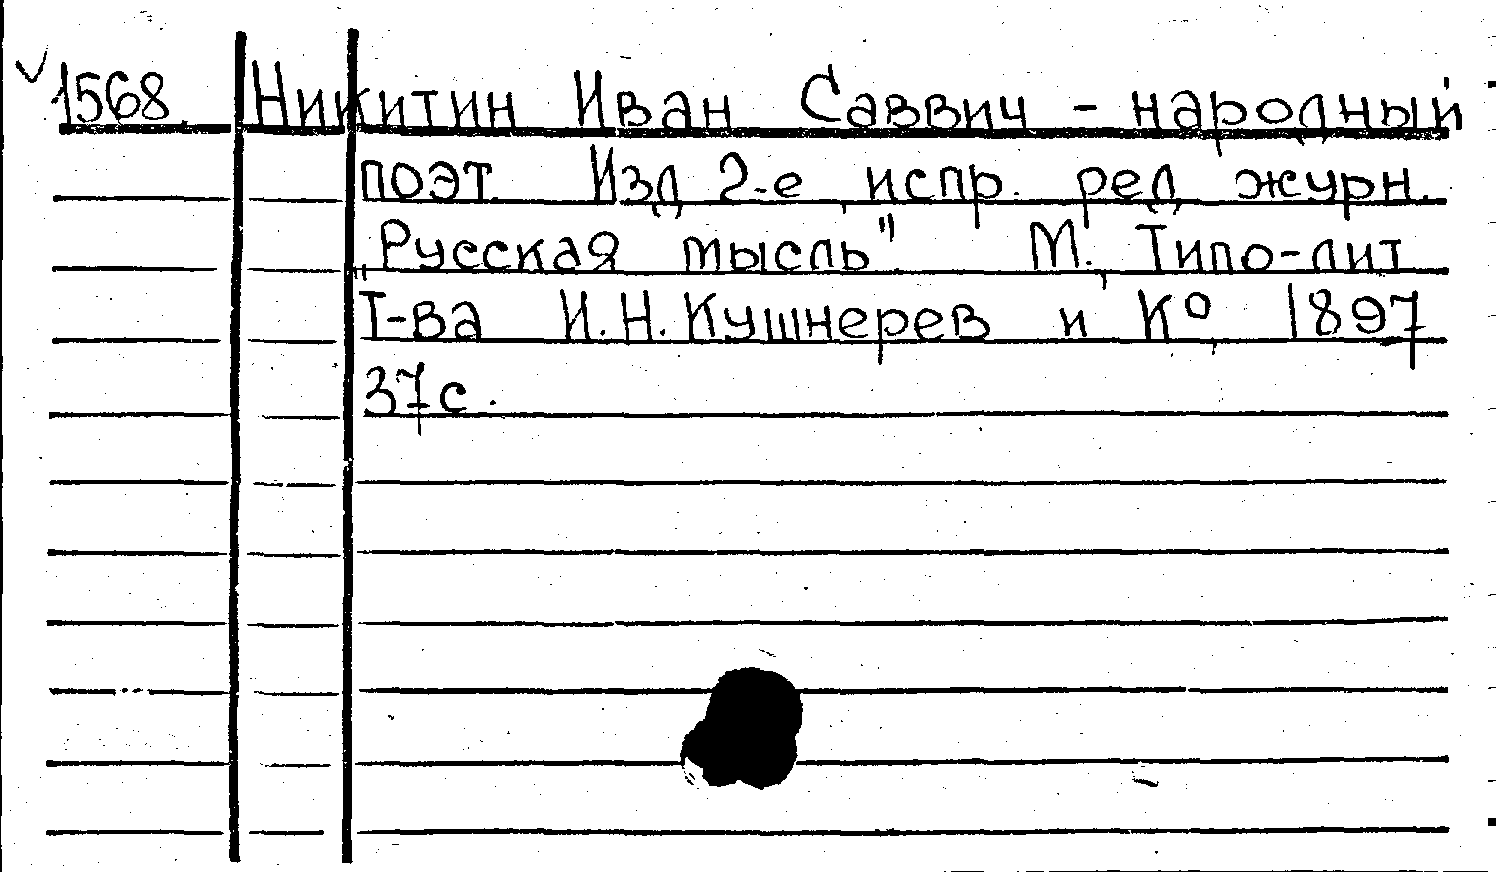 1568. Никитин Иван Саввич - народный
поэт. Изд. 2-е, испр. ред. журн.
„Русская мысль". М., Типо-лит.
Т-ва И.Н. Кушнерев и К°, 1897
37с.